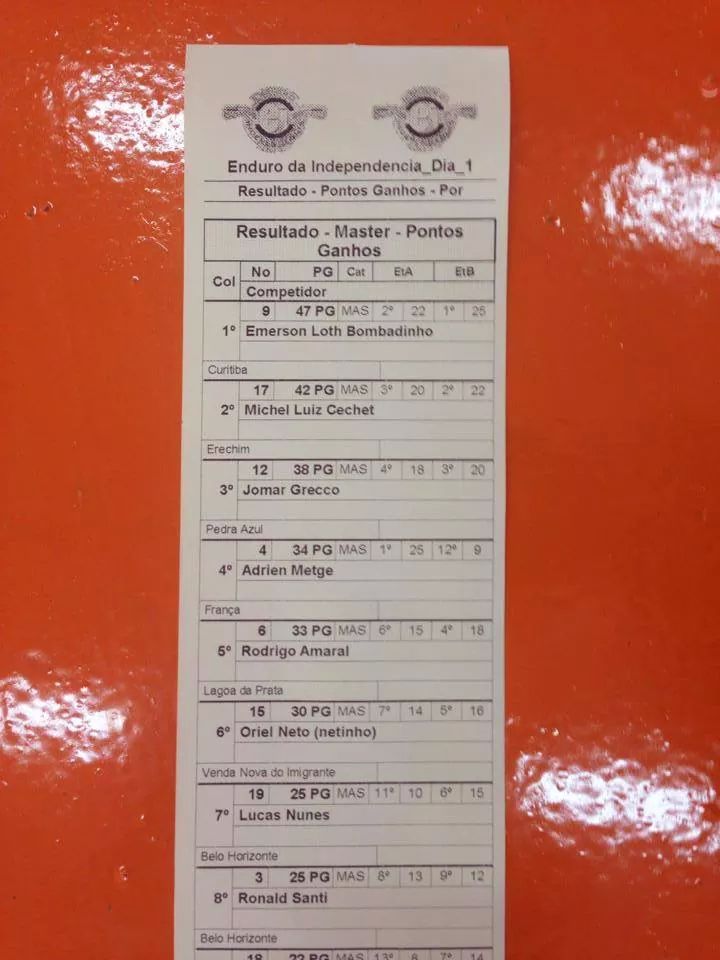 Enduro da Independencia_Dia_1
Resultado - Pontos Ganhos - Por
Resultado - Master - Pontos
Ganhos
Col No PG Cat EtA EtB
Competidor
9 47 PG MAS 2º 22 1º 25
1º Emerson Loth Bombadinho
Curitiba
17 42 PG MAS 3º 20 2º 22
2º Michel Luiz Cechet
Erechim
12 38 PG MAS 4º 18 3º 20
3º Jomar Grecco
Pedra Azul
4 34 PG MAS 1º 25 12º 9
4º Adrien Metge
França
6 33 PG MAS 6º 15 4º 18
5º Rodrigo Amaral
Lagoa da Prata
15 30 PG MAS 7º 14 5º 16
6º Oriel Neto (netinho)
Venda Nova do Imigrante
19 25 PG MAS 11º 10 6º 15
7º Lucas Nunes
Belo Horizonte
3 25 PG MAS 8º 13 9º 12
8º Ronald Santi
Belo Horizonte
18 22 PG MAS 13º 8 7º 14